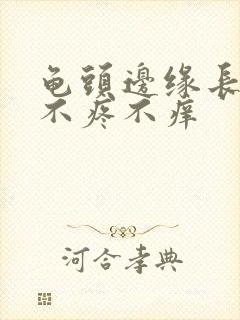 龟頭邊缘長
不疼不痒
河合孝典